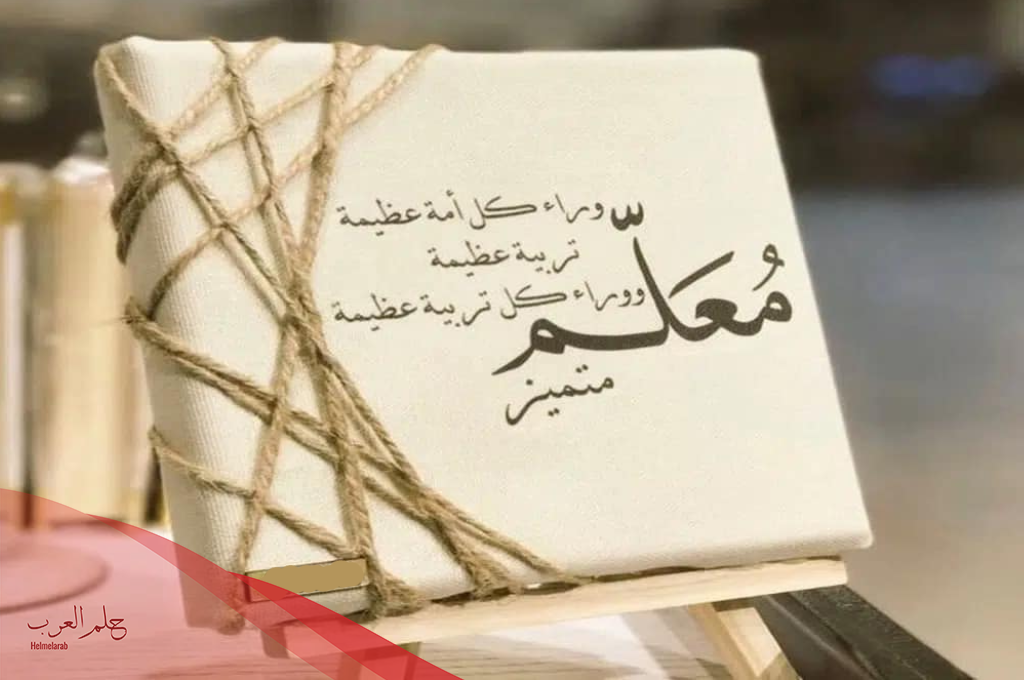 وراء كل أمة عظيمة
تربية عظيمة
ووراء كل تربية عظيمة
مُعَلّم
متميز
حلم العرب
Helmelarab